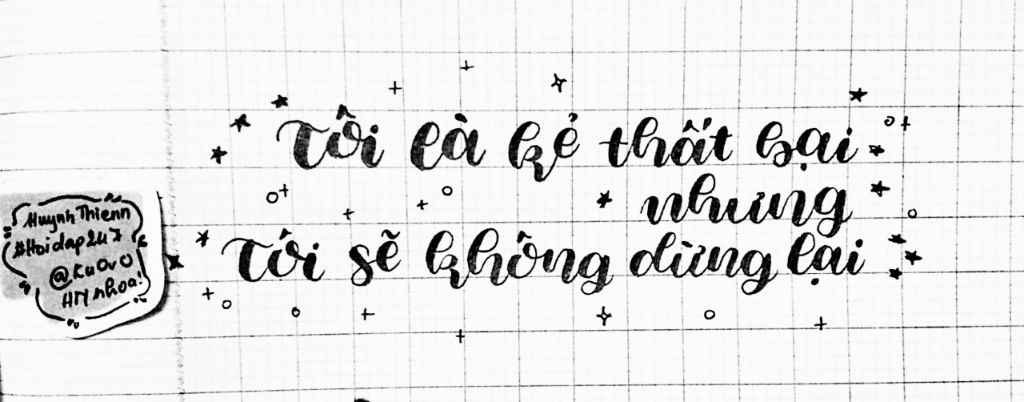 Tôi là kẻ thất bại
nhưng
Tôi sẽ không dừng lại
HuynhThienn
#Hoidap247
@KuOvO
HM nhoa!